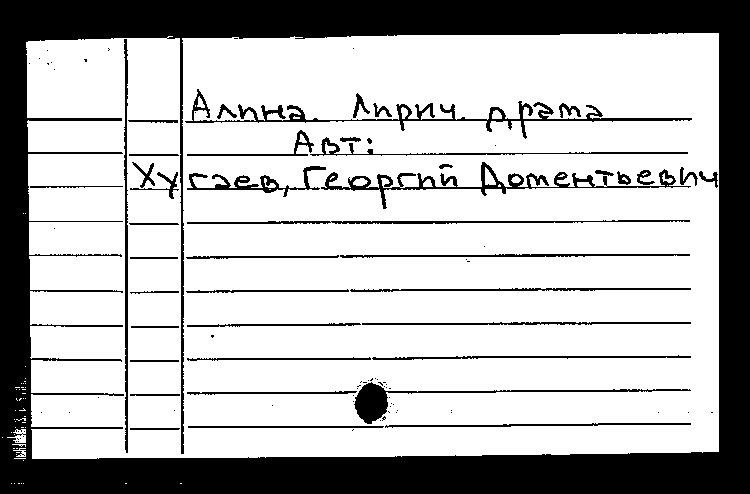 Алина. Лирич. драма
Авт:
Хугаев, Георгий Доментьевич